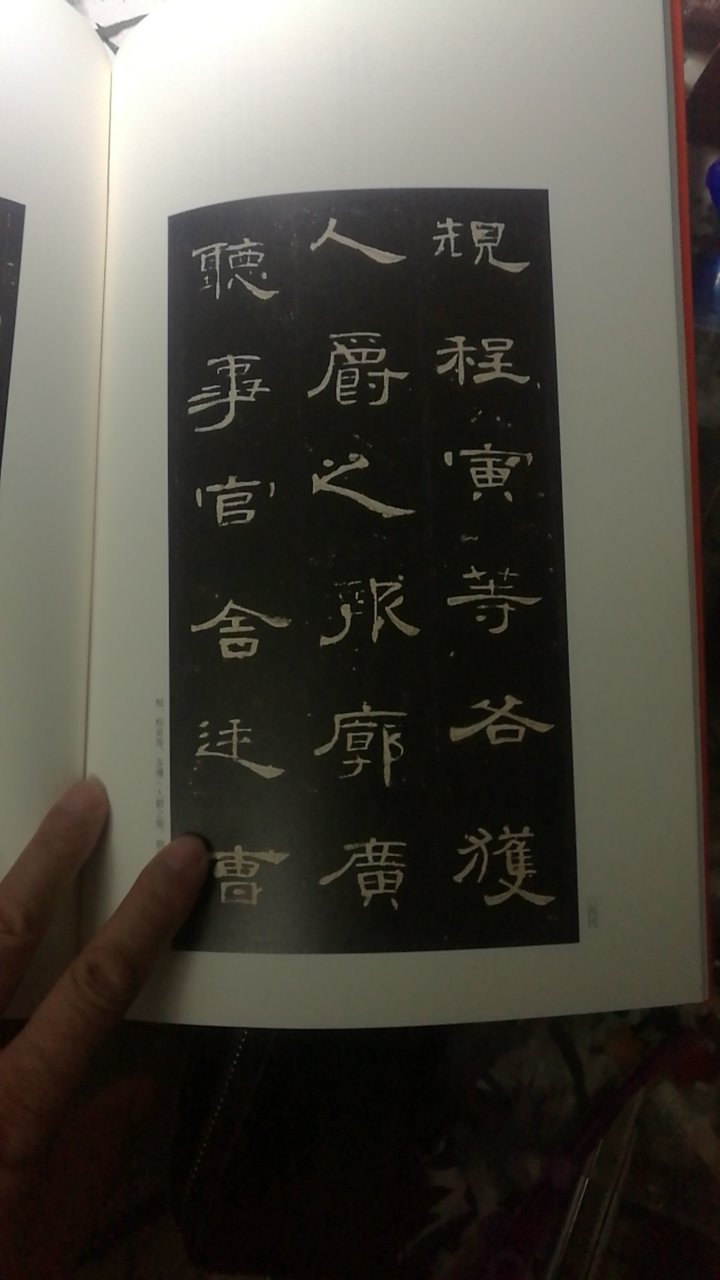 規程寅等各獲
人爵之報廓廣
聽事官舍廷曹
規、程寅等，各獲人爵之報。